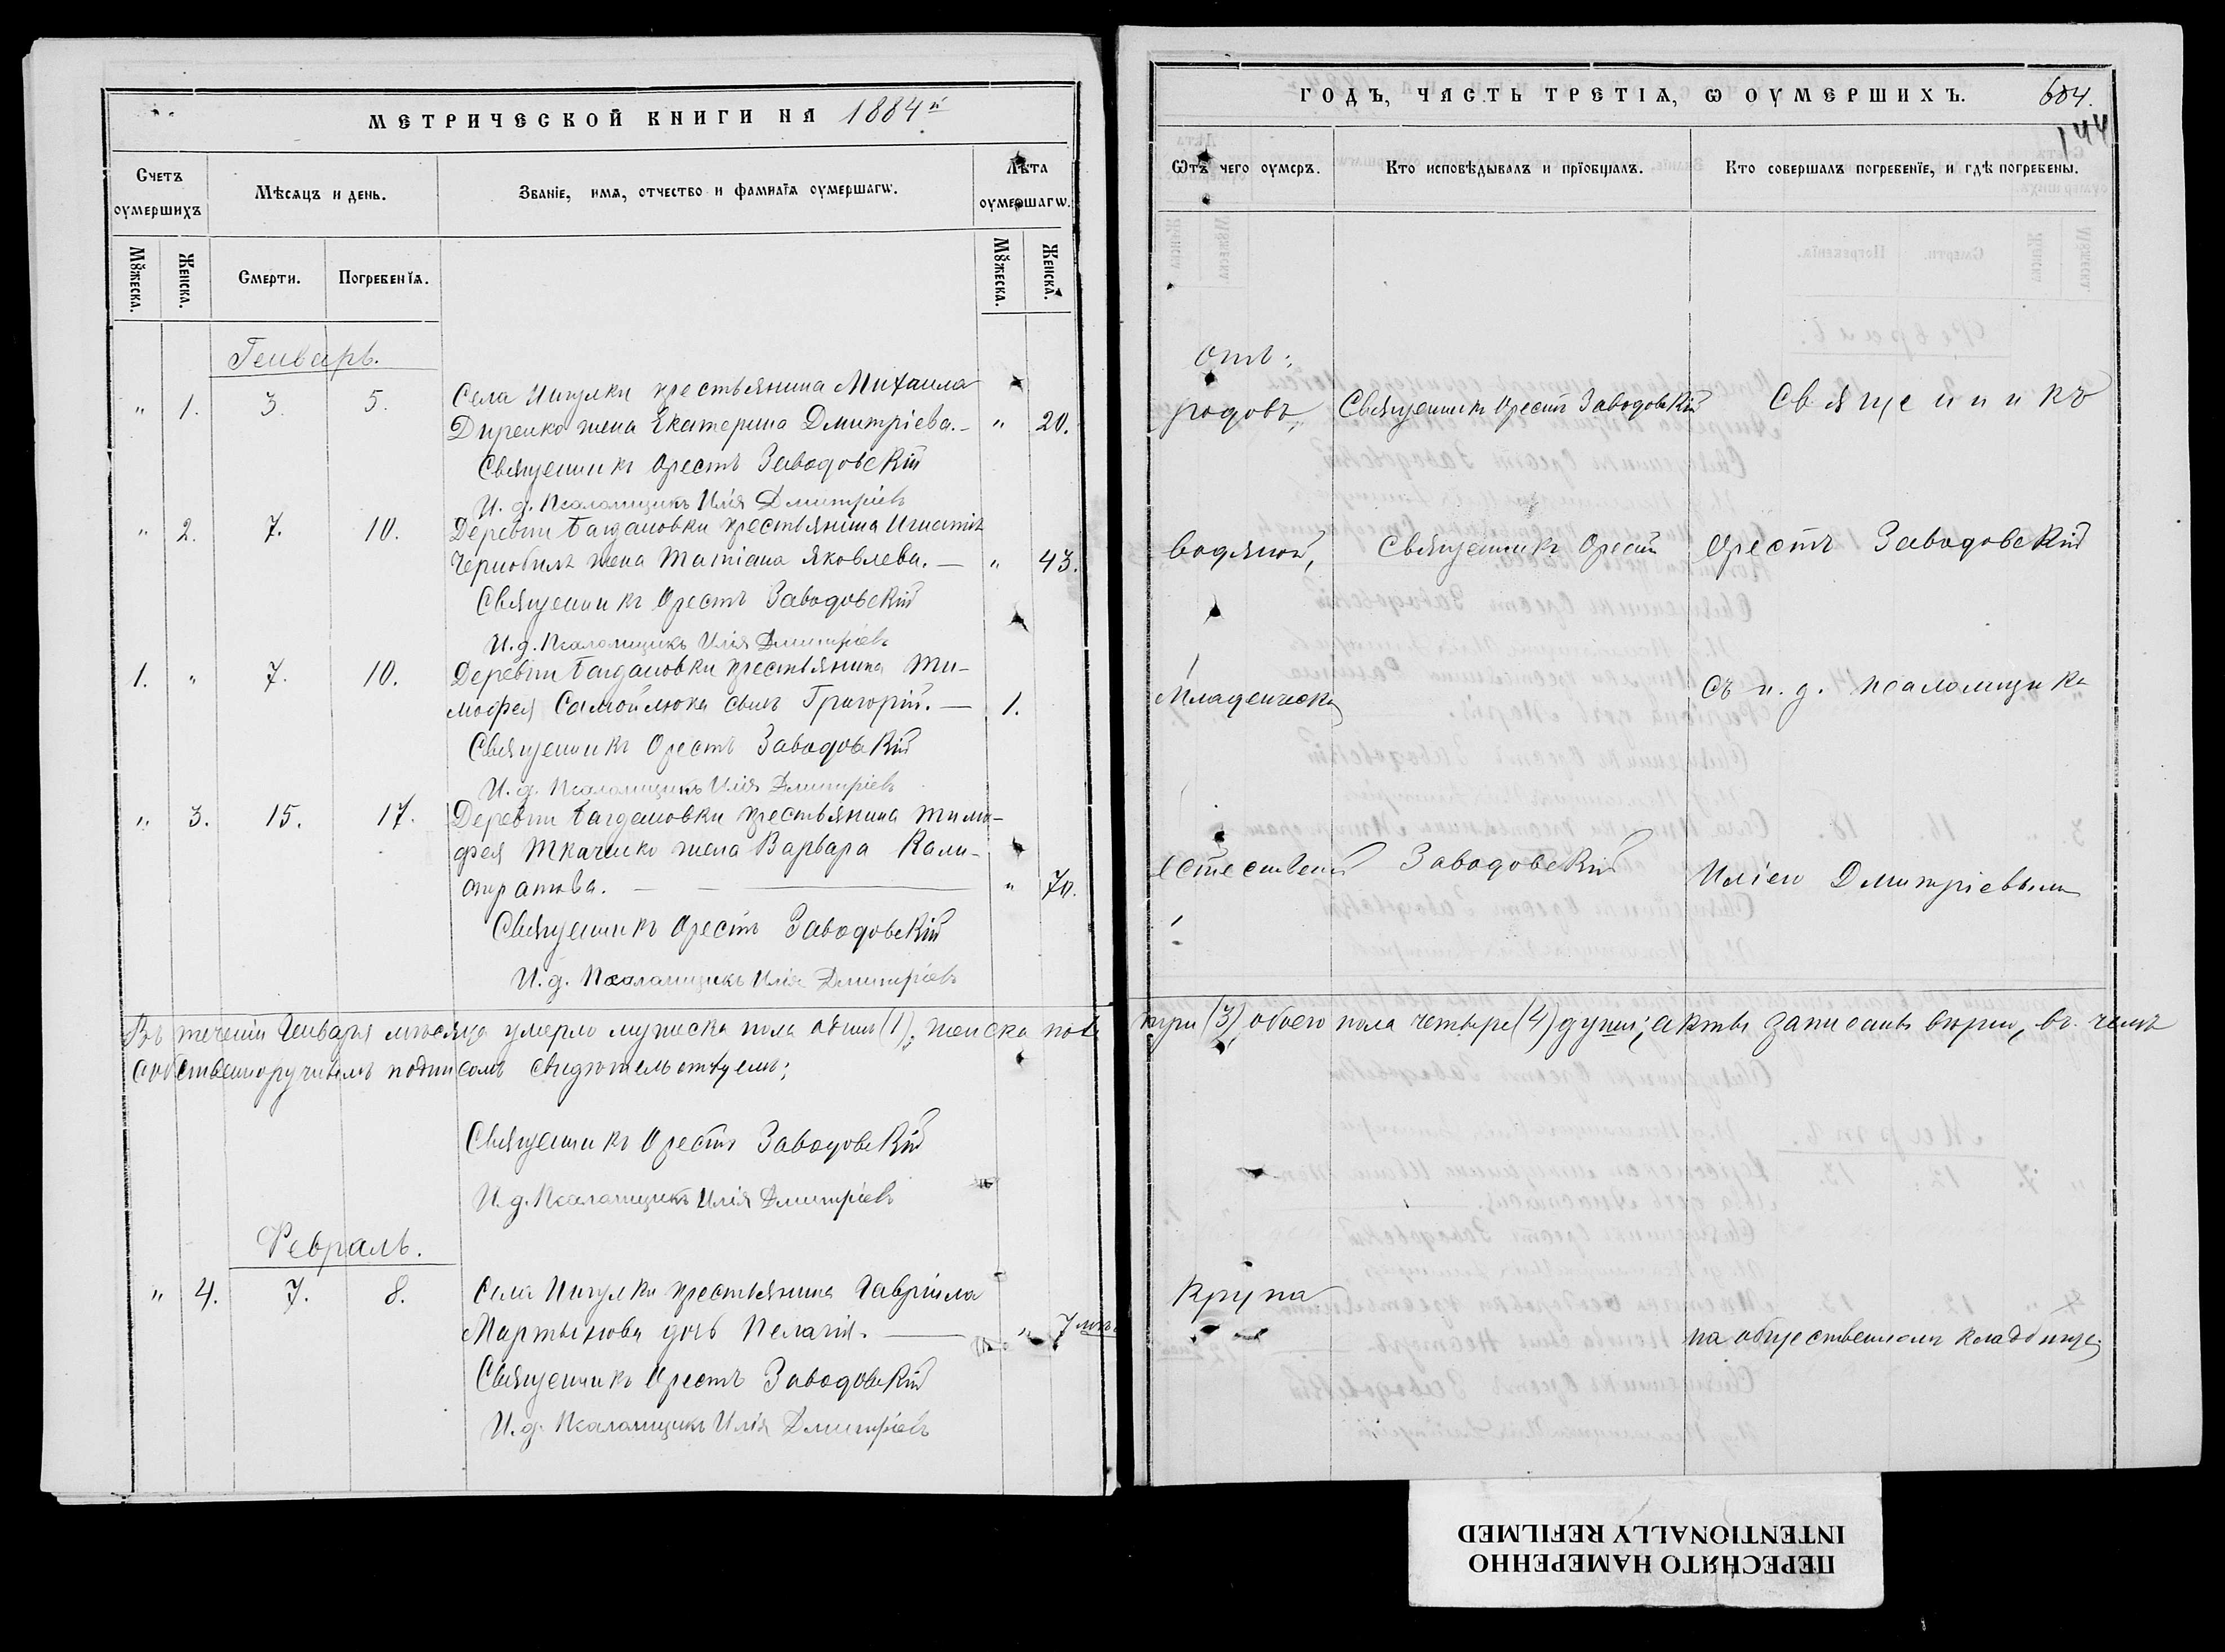 МЕТРИЧЕСКОЙ КНИГИ НА 1884й
Счетъ оумершихъ
Мѣсяцъ и день.
Званіе, имя, отчество и фамилія оумершагѡ.
Лѣта оумершагѡ.
Мꙋжеска.
Женска.
Смерти.
Погребенїѧ.
Мꙋжеска.
Женска.
Генварь.
" 1. 3. 5. Села Ингулки крестьянина Михаила
Диренко жена Екатерина Дмитріева.- " 20.
Священникъ Орестъ Заводовскій
И. д. Псаломщикъ Илія Дмитріевъ
" 2. 7. 10. Деревни Багдановки крестьянина Игнатія
Чернобиль жена Татіана Яковлева. — " 43.
Священникъ Орестъ Заводовскій
И. д. Псаломщикъ Илія Дмитріевъ
1. " 7. 10. Деревни Багдановки крестьянина Ти-
мофея Самойлюка сынъ Григорій. — 1.
Священникъ Орестъ Заводовскій
И. д. Псаломщикъ Илія Дмитріевъ
" 3. 15. 17. Деревни Багдановки крестьянина Тимо-
фея Ткаченко жена Варвара Кали-
стратова. — — " 70.
Священникъ Орестъ Заводовскій
И. д. Псаломщикъ Илія Дмитріевъ
Въ теченіи Генваря мѣсяца умерло мужеска пола одинъ (1), женска пола
собственноручнымъ подписомъ свидѣтельствуемъ;
Священникъ Орестъ Заводовскій
И. д. Псаломщикъ Илія Дмитріевъ
Февраль.
" 4. 7. 8. Села Ингулки крестьянина Гавріила
Мартынова дочь Пелагія. — " 7 мѣс.
Священникъ Орестъ Заводовскій
И. д. Псаломщикъ Илія Дмитріевъ
ГОДЪ, ЧАСТЬ ТРЕТІѦ, Ѡ ОУМЕРШИХЪ. 604.
144
Ѿтъ чего оумеръ.
Кто исповѣдывалъ и прїобщалъ.
Кто совершалъ погребенїе, и гдѣ погребены.
отъ:
родовъ, Священникъ Орестъ Заводовскій Священникъ
водяной, Священникъ Орестъ Орестъ Заводовскій
Младенческ. съ и. д. псаломщика
естествен. Заводовскій Иліею Дмитріевымъ
три (3), обоего пола четыре (4) души; акты записаны вѣрно, въ чемъ
Крупа
на общественномъ кладбище;
ПЕРЕСНЯТО НАМЕРЕННО
INTENTIONALLY REFILMED